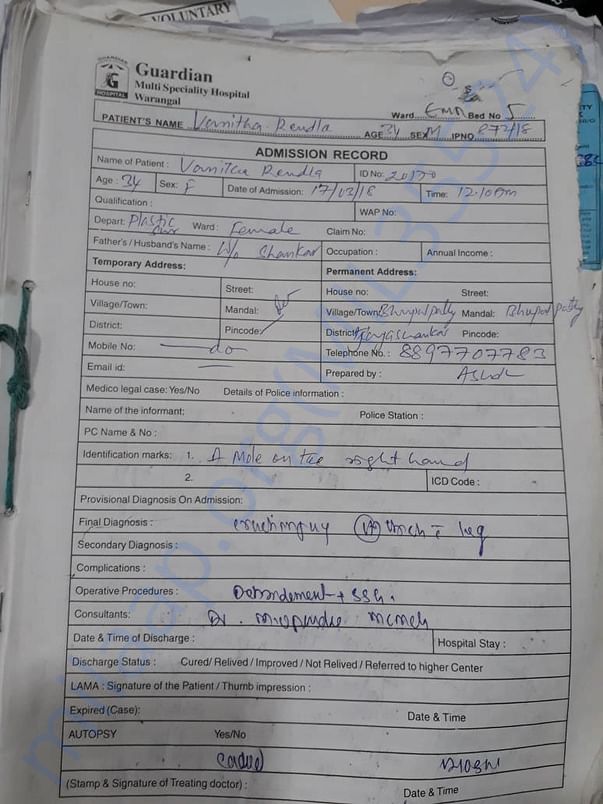 VOLUNTARY
GUARDIAN
G
HOSPITAL
Guardian
Multi Speciality Hospital
Warangal
Ward Bed No 5
PATIENT'S NAME Vanitha Rendla AGE 34 SEX IPNO. 872/18
ADMISSION RECORD
Name of Patient : Vanitha Rendla ID No: 20170
Age : 34 Sex: F Date of Admission: 17/03/18 Time: 12.10pm
Qualification : WAP No:
Depart: Plastic Ward : Female Claim No:
Father's / Husband's Name : W/o Shankar Occupation : Annual Income :
Temporary Address: Permanent Address:
House no: Street: House no: Street:
Village/Town: Mandal: Village/Town: Bhupalpally Mandal: Bhupalpally
District: Pincode: District: Jayashankar Pincode:
Mobile No: do Telephone No. : 8897707783
Email id: Prepared by : Ashok
Medico legal case: Yes/No Details of Police information :
Name of the informant: Police Station :
PC Name & No :
Identification marks: 1. A Mole on the right hand
2. ICD Code :
Provisional Diagnosis On Admission:
Final Diagnosis : leg
Secondary Diagnosis :
Complications :
Operative Procedures : Debridement + SSG.
Consultants: Dr.
Date & Time of Discharge : Hospital Stay :
Discharge Status : Cured/ Relived / Improved / Not Relived / Referred to higher Center
LAMA : Signature of the Patient / Thumb impression :
Expired (Case): Date & Time
AUTOPSY Yes/No
(Stamp & Signature of Treating doctor) : Date & Time